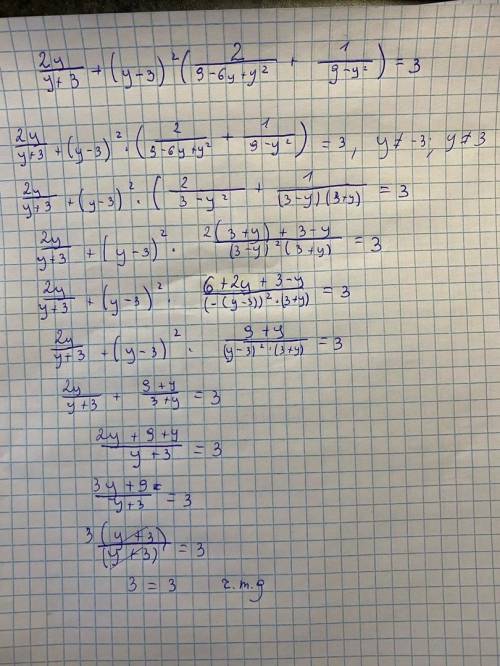 2y/(y+3) + (y-3)² (2/(9-6y+y²) + 1/(9-y²)) = 3
2y/(y+3) + (y-3)² · (2/(9-6y+y²) + 1/(9-y²)) = 3, y ≠ -3; y ≠ 3
2y/(y+3) + (y-3)² · (2/(3-y²) + 1/((3-y)(3+y))) = 3
2y/(y+3) + (y-3)² · (2(3+y)+3-y)/((3-y)²(3+y)) = 3
2y/(y+3) + (y-3)² · (6+2y+3-y)/((-(y-3))²·(3+y)) = 3
2y/(y+3) + (y-3)² · (9+y)/((y-3)²·(3+y)) = 3
2y/(y+3) + (9+y)/(3+y) = 3
(2y+9+y)/(y+3) = 3
(3y+9)/(y+3) = 3
3(y+3)/(y+3) = 3
3 = 3 ч.т.д